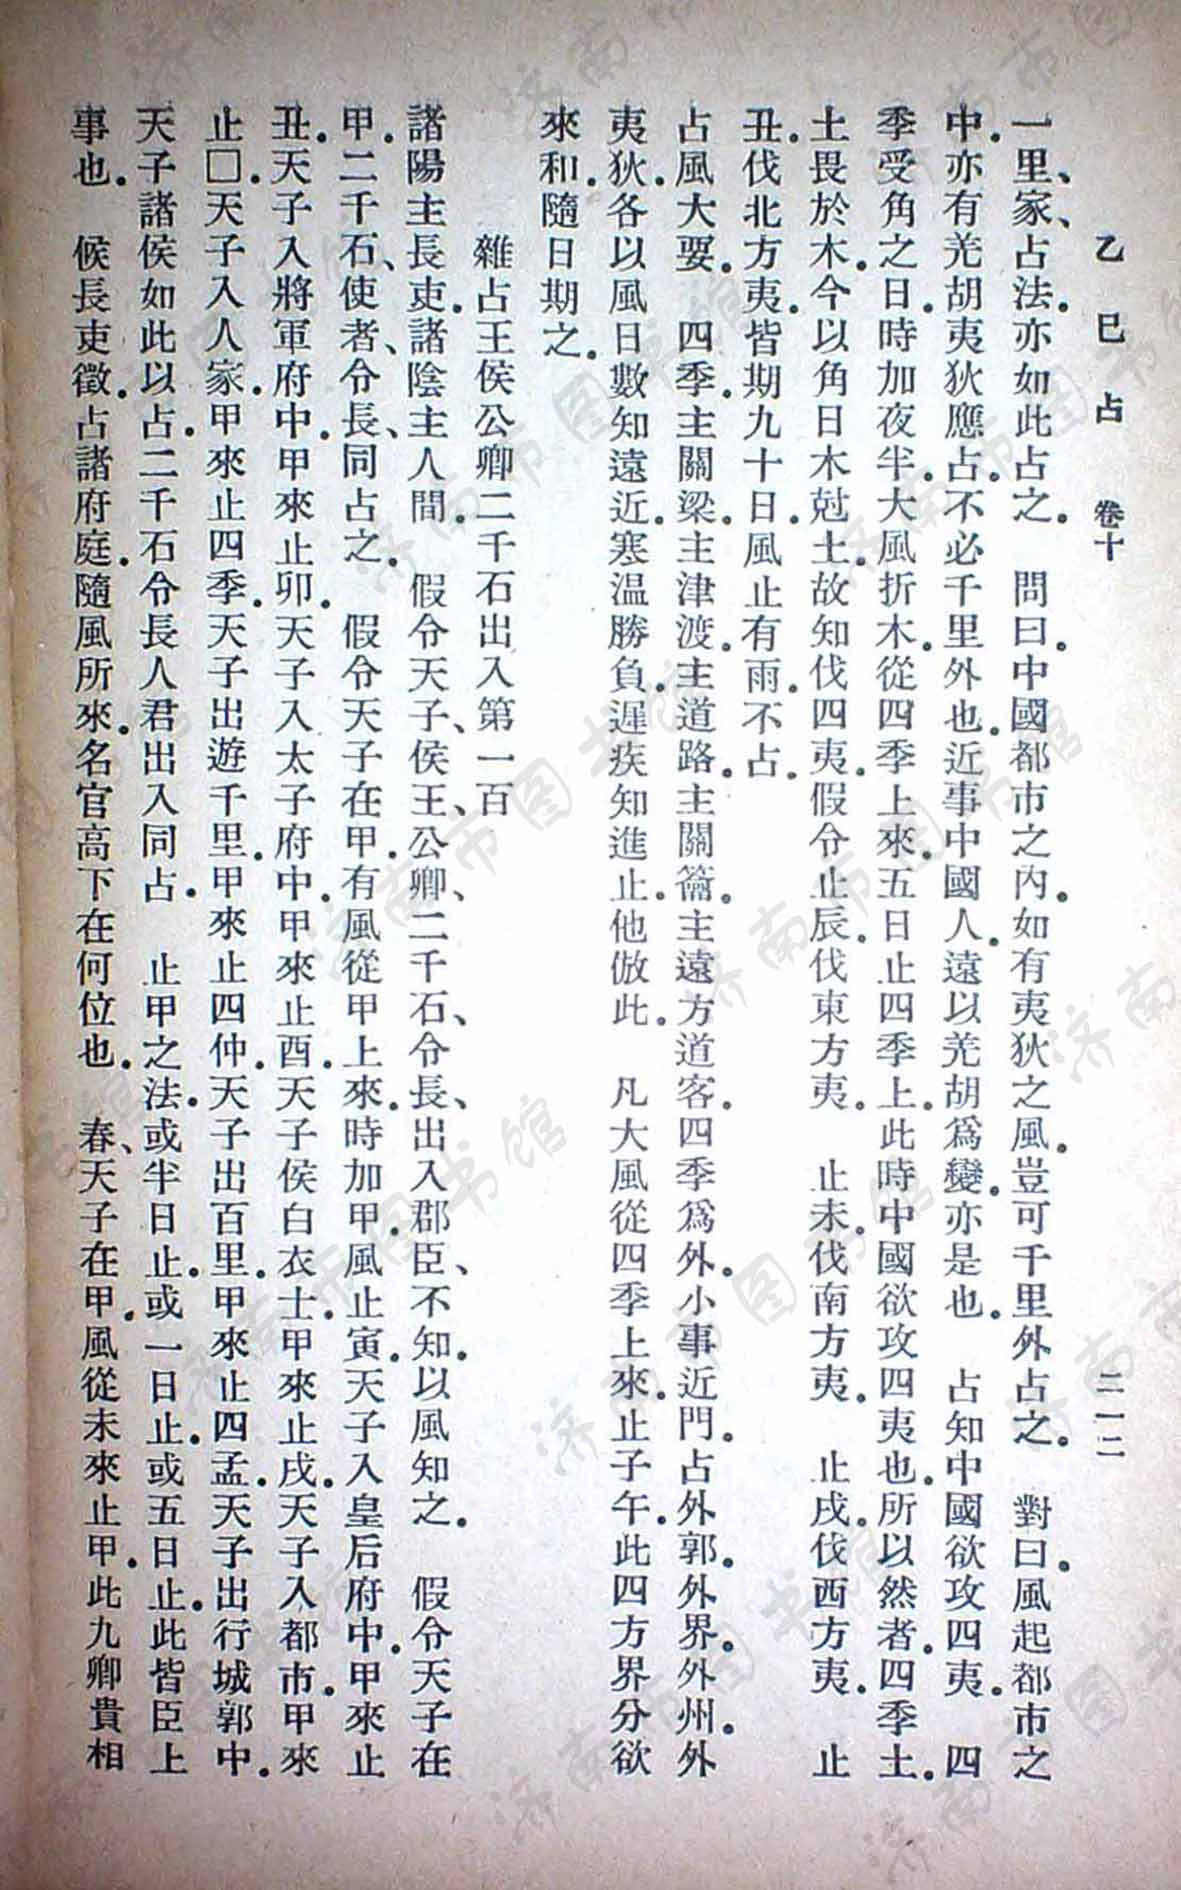 乙巳占 卷十 二一二
一里、家、占法亦如此占之。 問曰。中國都市之內。如有夷狄之風。豈可千里外占之。 對曰。風起都市之
中。亦有羌胡夷狄應占。不必千里外也。近事中國人。遠以羌胡爲變。亦是也。 占知中國欲攻四夷。 四
季受角之日。時加夜半。大風折木。從四季上來。五日止四季上。此時中國欲攻四夷也。所以然者。四季土。
土畏於木。今以角日木尅土。故知伐四夷。假令止辰。伐東方夷。 止未。伐南方夷。 止戌。伐西方夷。 止
丑。伐北方夷。皆期九十日。風止有雨。不占。
占風大要。 四季。主關梁。主津渡。主道路。主關籥。主遠方道客。四季爲外。小事近門。占外郭。外界。外州。外
夷狄。各以風日數知遠近。寒温勝負。遲疾知進止。他倣此。 凡大風從四季上來。止子午。此四方界分欲
來和。隨日期之。
雜占王侯公卿二千石出入第一百
諸陽主長吏。諸陰主人間。 假令天子、侯王、公卿、二千石、令長、出入郡臣、不知。以風知之。 假令天子在
甲。二千石、使者、令長、同占之。 假令天子在甲。有風從甲上來。時加甲。風止寅。天子入皇后府中。甲來止
丑。天子入將軍府中。甲來止卯。天子入太子府中。甲來止酉。天子侯白衣士。甲來止戌。天子入都市。甲來
止□。天子入人家。甲來止四季。天子出遊千里。甲來止四仲。天子出百里。甲來止四孟。天子出行城郭中。
天子諸侯如此以占。二千石令長人君出入同占。 止甲之法。或半日止。或一日止。或五日止。此皆臣上
事也。 候長吏徵。占諸府庭。隨風所來。名官高下在何位也。 春、天子在甲。風從未來止甲。此九卿貴相